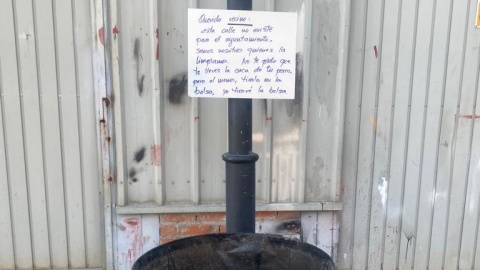 Querido vecino:
esta calle no existe
para el ayuntamiento,
somos nosotros quienes la
limpiamos. No te pido que
te lleves la caca de tu perro,
pero al menos, tirala en la
bolsa, yo tiraré la bolsa